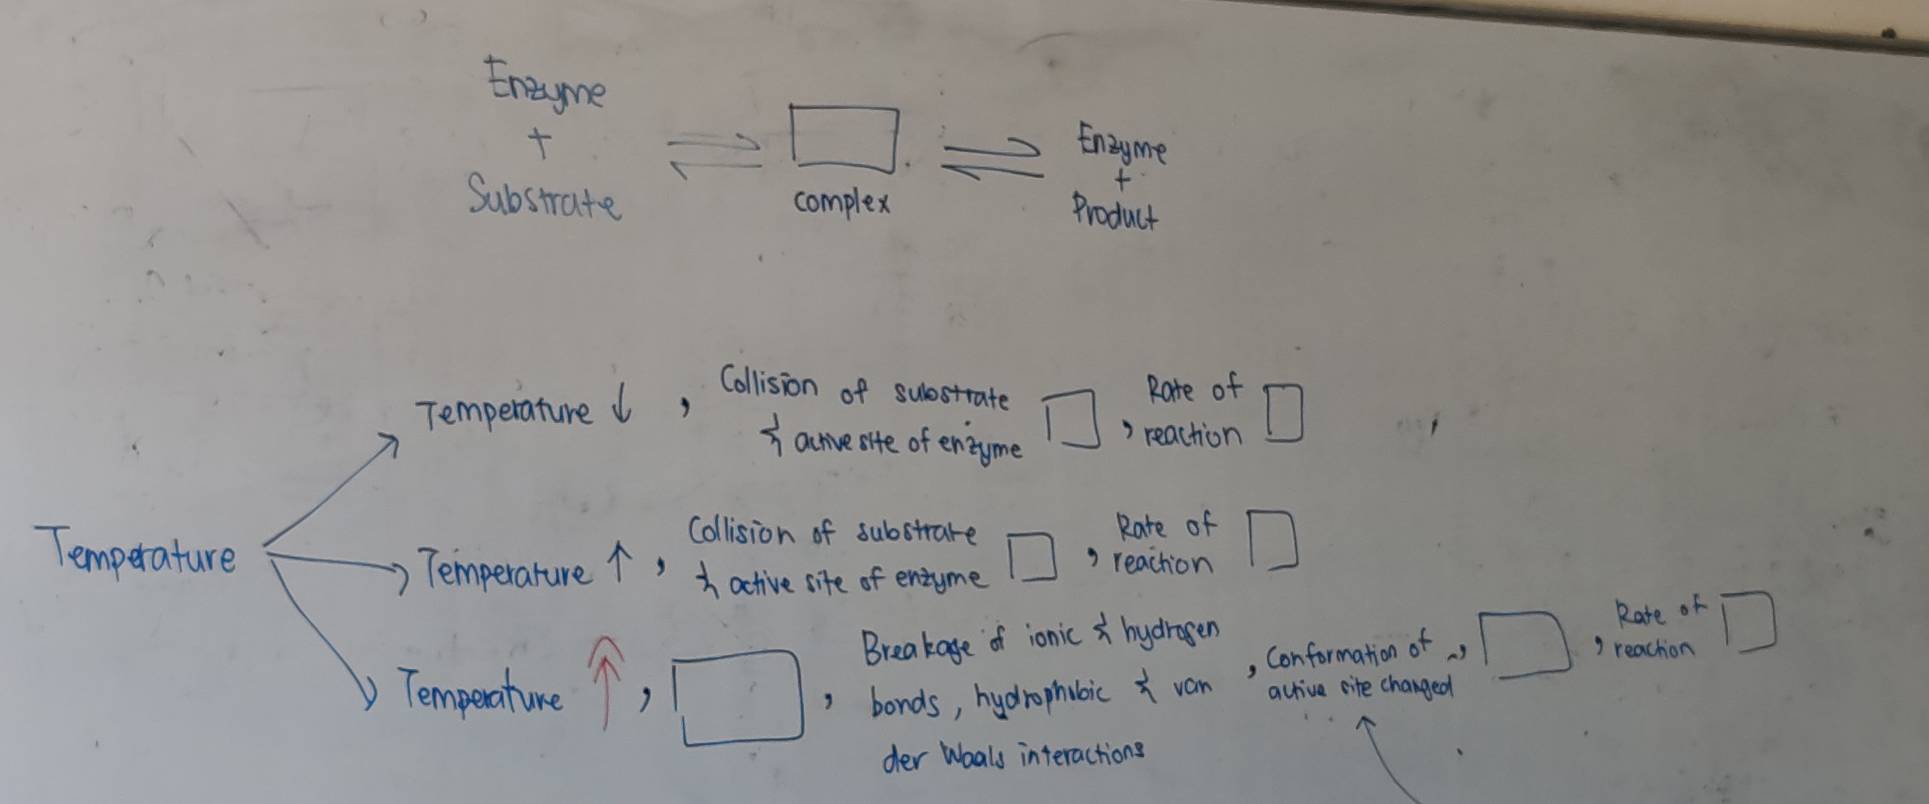 Enzyme
+
Substrate
⇌
complex
⇌
Enzyme
+
Product
Temperature
Temperature ↓ , Collision of substrate
& active site of enzyme , Rate of
reaction
Temperature ↑ , Collision of substrate
& active site of enzyme , Rate of
reaction
Temperature ↑ , , Breakage of ionic & hydrogen
bonds, hydrophobic & van
der Waals interactions
, Conformation of
active site changed
, Rate of
reaction